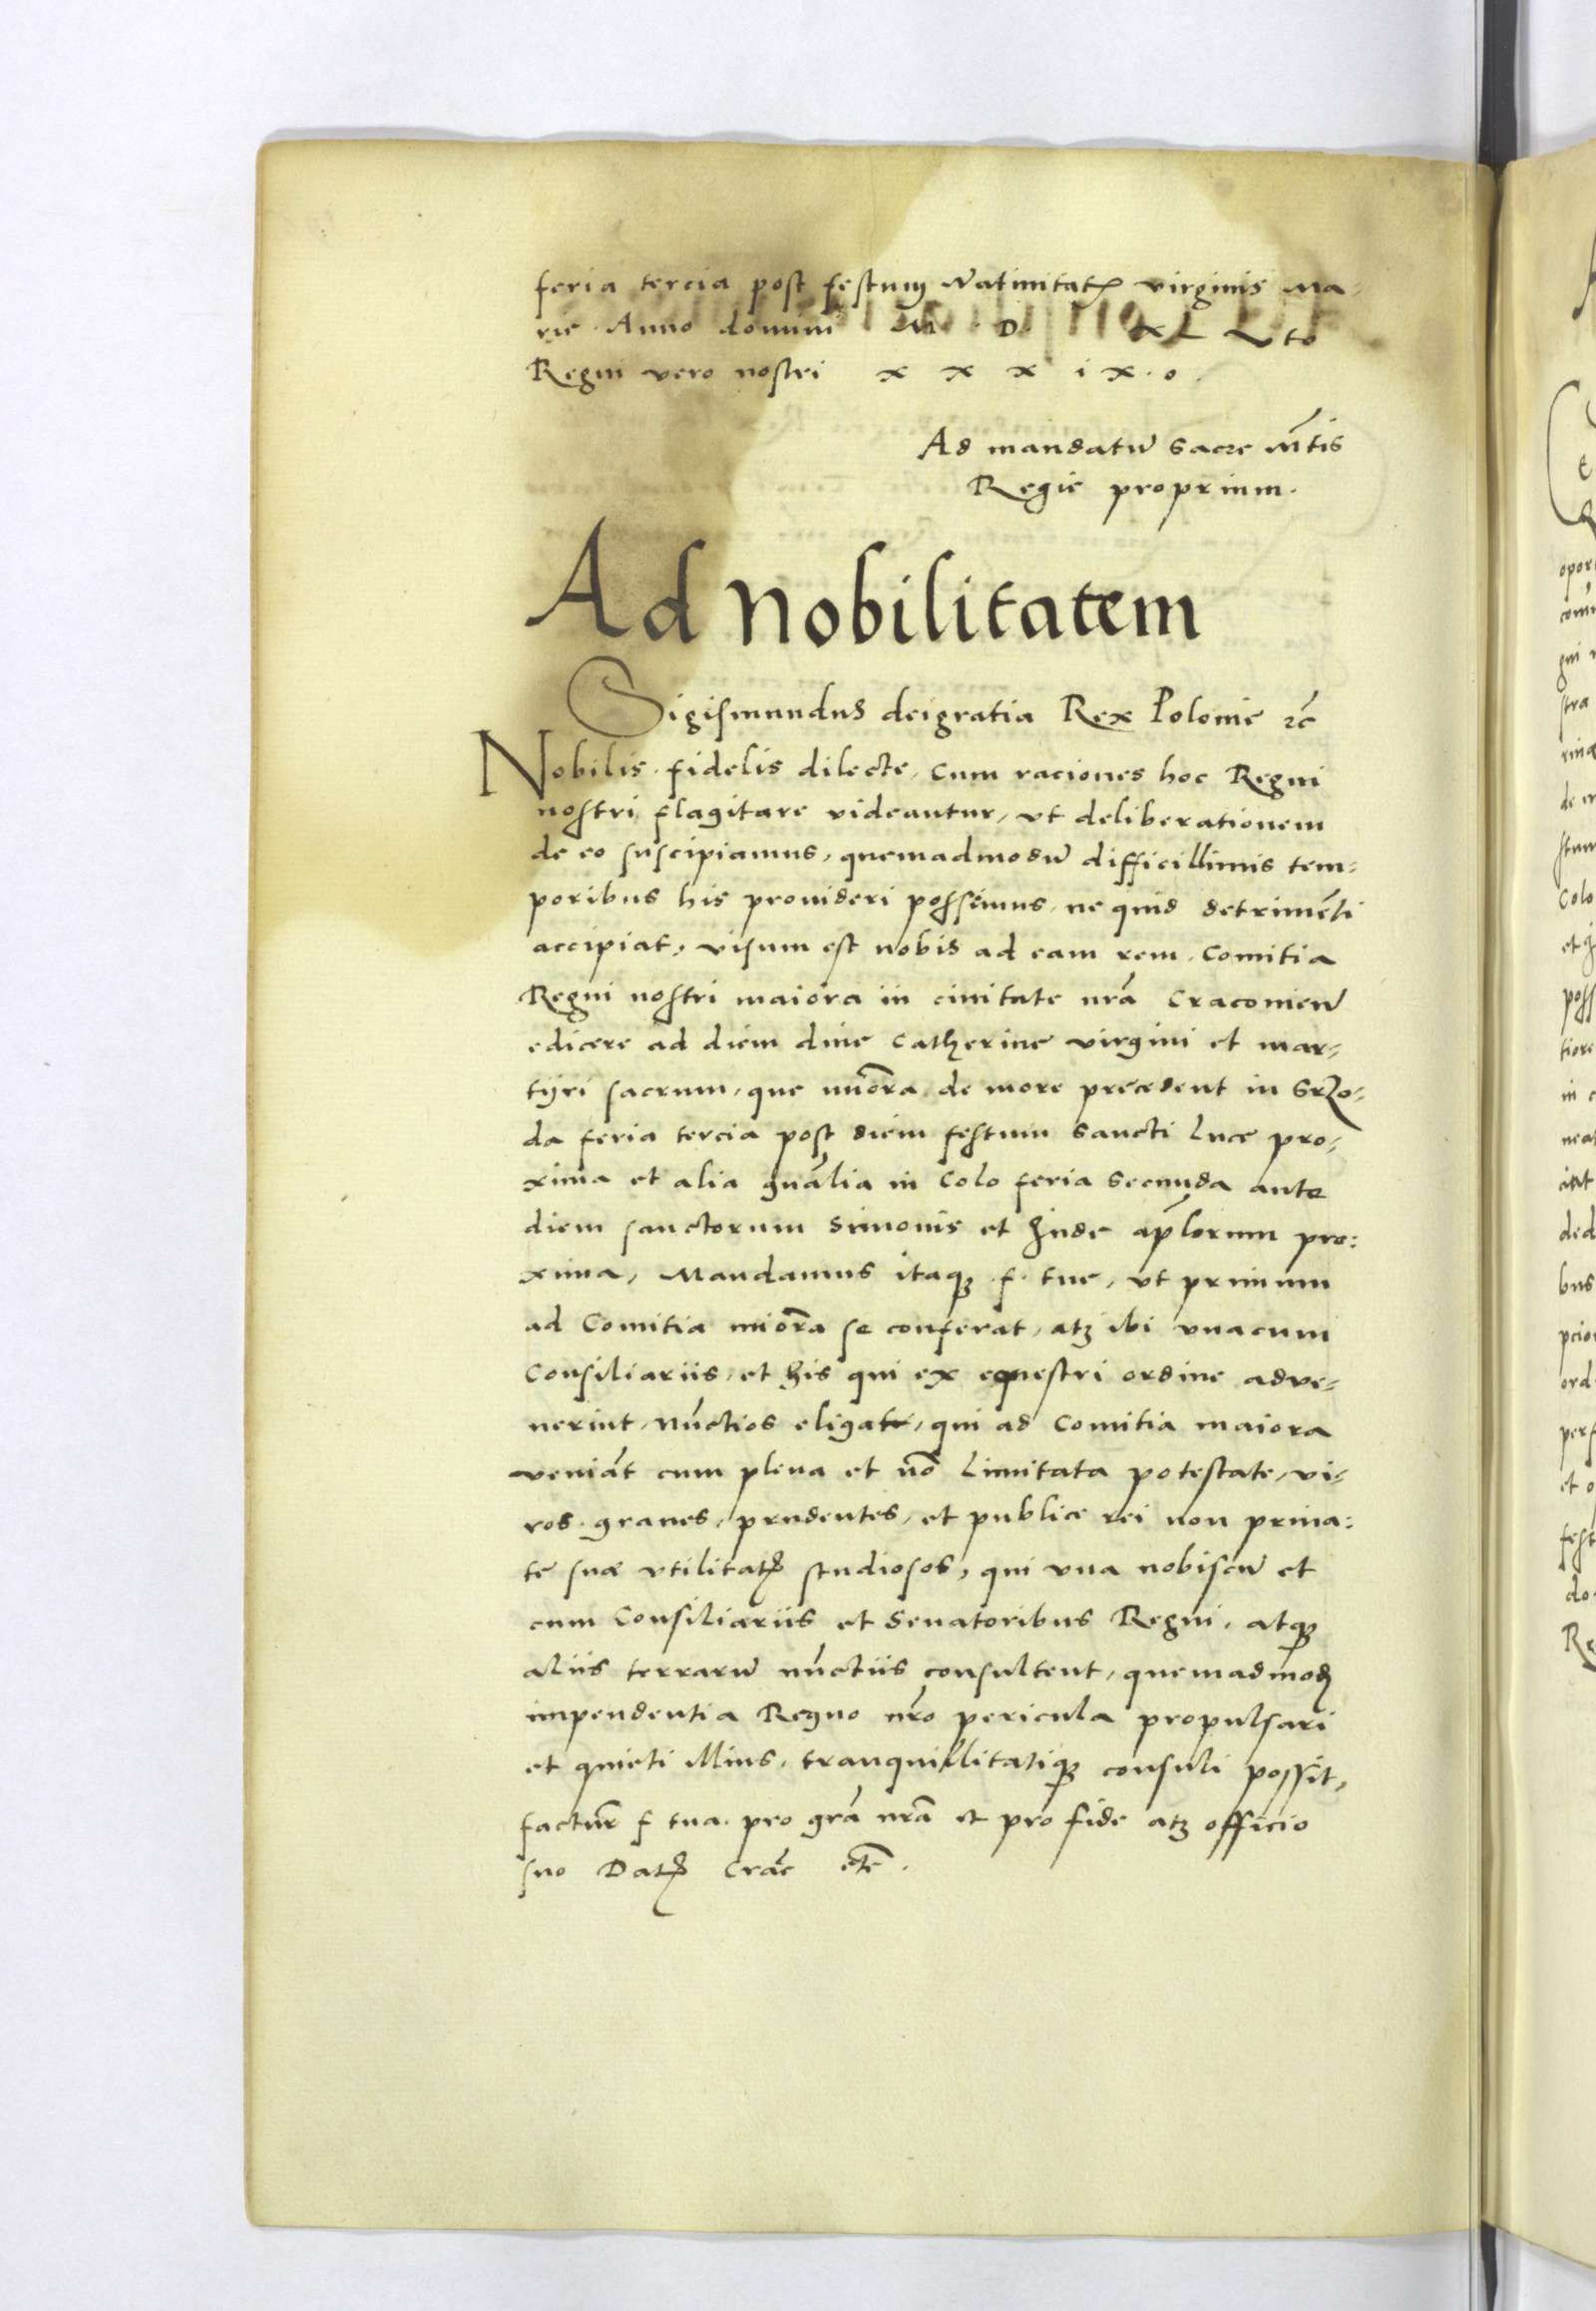 feria tercia post festum Natiuitatꝭ virginis Ma-
rie. Anno domini M D XL Vto
Regni vero nostri x x x i x. o.
Ad mandatū Sacre Mtis
Regie proprium.
Ad Nobilitatem
Sigismundus dei gratia Rex Polonie ꝛc̄
Nobilis. fidelis dilecte, Cum raciones hoc Regni
nostri flagitare videantur, vt deliberationem
de eo suscipiamus, quemadmodū difficillimis tem-
poribus his prouideri possimus, ne quid detrimēti
accipiat, visum est nobis ad eam rem, Comitia
Regni nostri maiora in ciuitate nrā Cracouien̄
edicere ad diem diue Catherine virgini et mar-
tyri sacrum, que miōra de more precedent in Srzo-
da feria tercia post diem festum Sancti Luce pro-
xima et alia gnālia in Colo feria Secunda ante
diem sanctorum Simonis et Jude ap̄lorum pro:
xima, Mandamus itaqꝫ f. tue, vt primum
ad Comitia miōra se conferat, atqꝫ ibi vnacum
Consiliariis, et his qui ex equestri ordine adve-
nerint, nūctios eligat, qui ad Comitia maiora
veniāt cum plena et nō Limitata potestate, vi-
ros. graues, prudentes, et publice rei non priua:
te sue vtilitatꝭ studiosos, qui vna nobiscū et
cum Consiliariis et Senatoribus Regni, atqꝫ
aliis terrarū nūctiis consultent, quemadmoꝺ
impendentia Regno nrō pericula propulsari
et quieti illius, tranquillitatiqꝫ consuli possit,
factur̄ f tua. pro grā nrā et pro fide atqꝫ officio
suo Datꝭ Crāc etc̄.